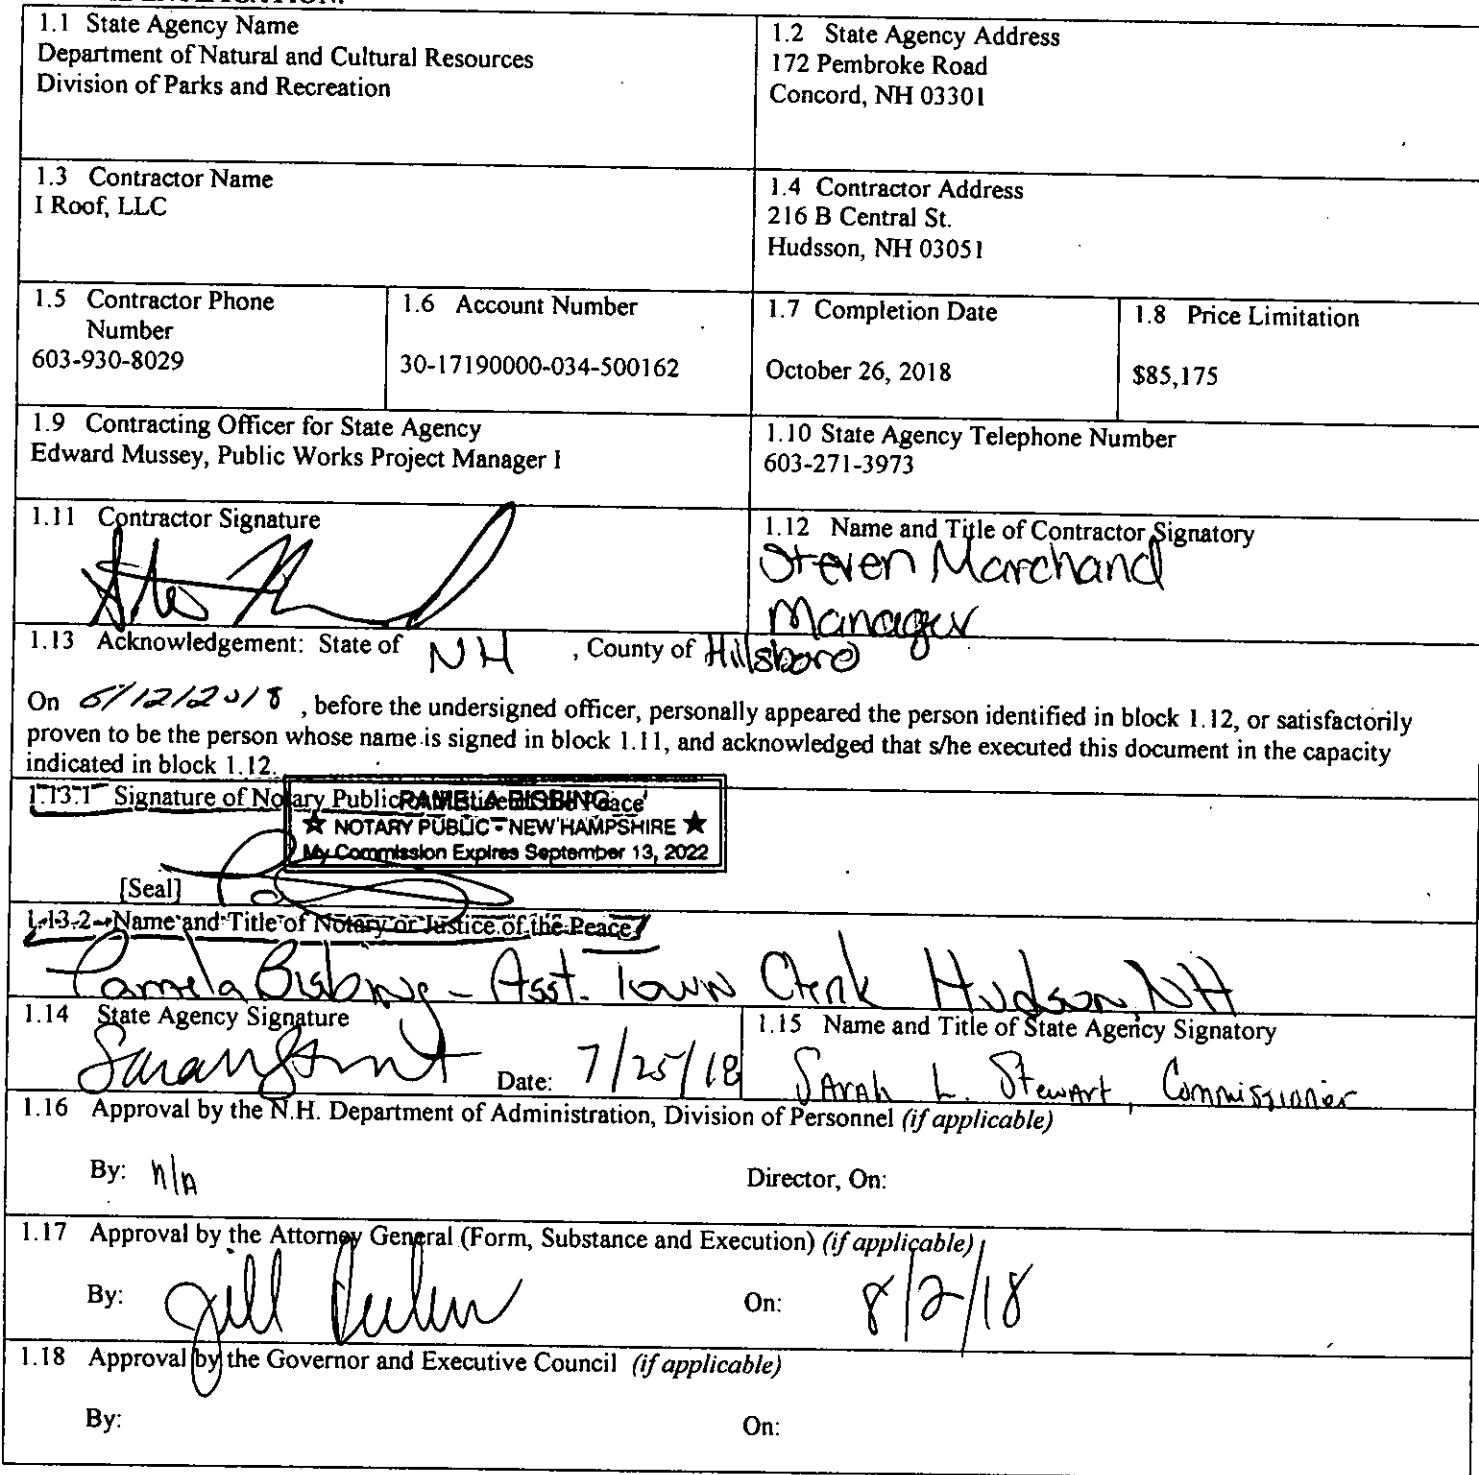 1.1 State Agency Name
Department of Natural and Cultural Resources
Division of Parks and Recreation
1.2 State Agency Address
172 Pembroke Road
Concord, NH 03301
1.3 Contractor Name
I Roof, LLC
1.4 Contractor Address
216 B Central St.
Hudsson, NH 03051
1.5 Contractor Phone
Number
603-930-8029
1.6 Account Number
30-17190000-034-500162
1.7 Completion Date
October 26, 2018
1.8 Price Limitation
$85,175
1.9 Contracting Officer for State Agency
Edward Mussey, Public Works Project Manager I
1.10 State Agency Telephone Number
603-271-3973
1.11 Contractor Signature
1.12 Name and Title of Contractor Signatory
Steven Marchand
Manager
1.13 Acknowledgement: State of NH , County of Hillsboro
On 6/12/2018 , before the undersigned officer, personally appeared the person identified in block 1.12, or satisfactorily
proven to be the person whose name is signed in block 1.11, and acknowledged that s/he executed this document in the capacity
indicated in block 1.12.
1.13.1 Signature of Notary Public
PAMELA BISBING
NOTARY PUBLIC - NEW HAMPSHIRE
My Commission Expires September 13, 2022
[Seal]
1.13.2 Name and Title of Notary or Justice of the Peace
Pamela Bisbing - Asst. Town Clerk Hudson NH
1.14 State Agency Signature
Date: 7/25/18
1.15 Name and Title of State Agency Signatory
Sarah L. Stewart, Commissioner
1.16 Approval by the N.H. Department of Administration, Division of Personnel (if applicable)
By: n/a
Director, On:
1.17 Approval by the Attorney General (Form, Substance and Execution) (if applicable)
By: Jill
On: 8/2/18
1.18 Approval by the Governor and Executive Council (if applicable)
By:
On: